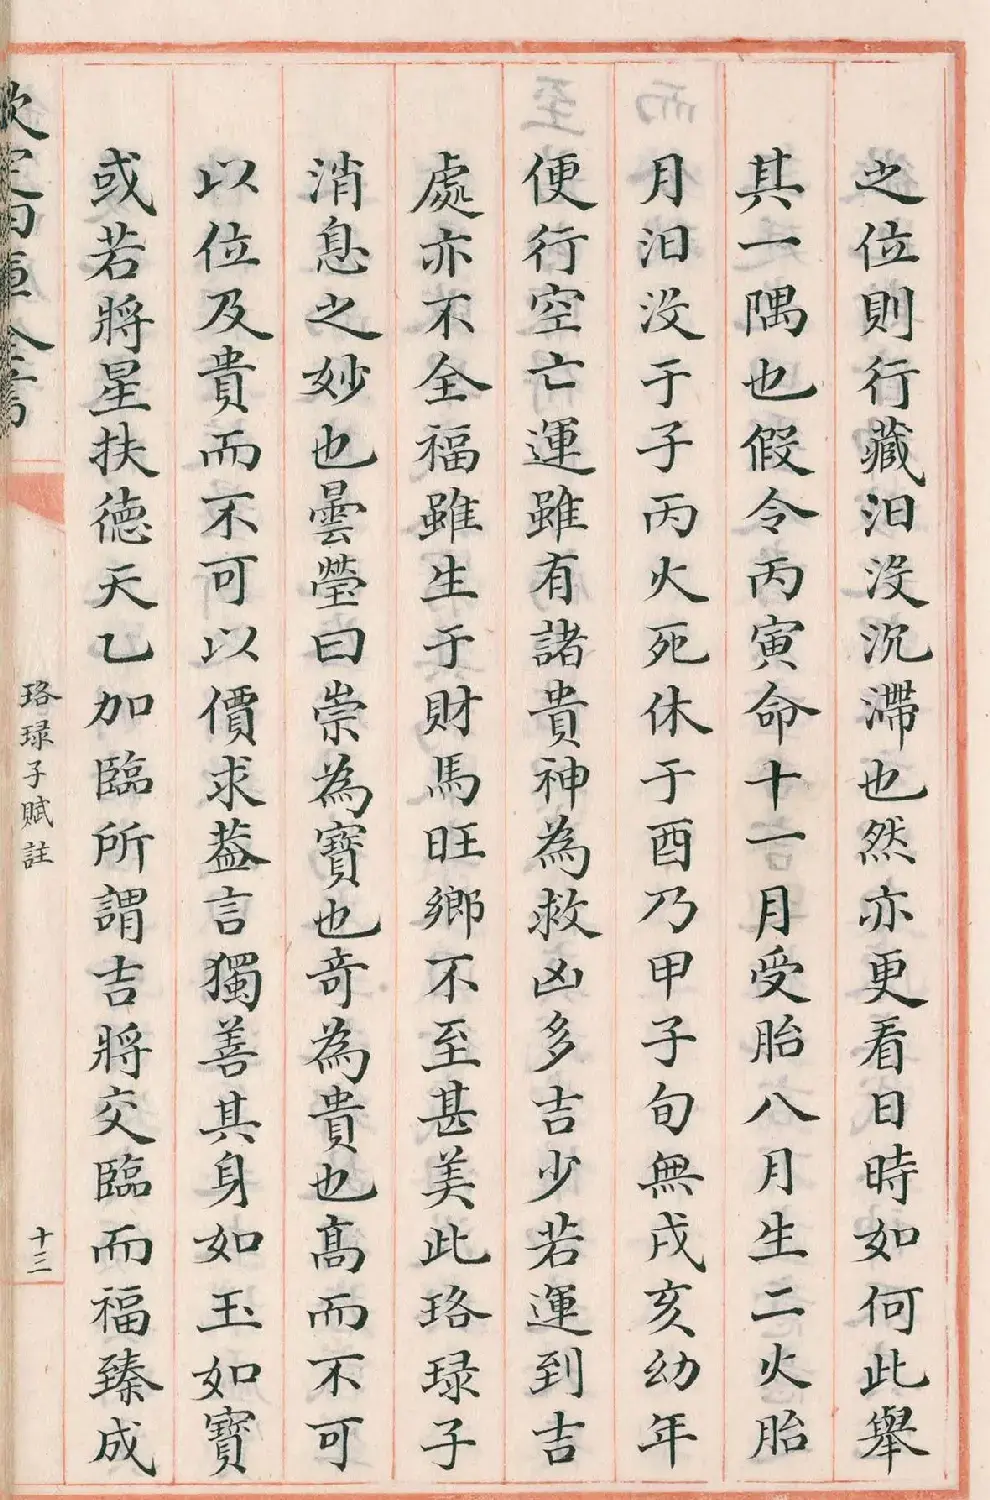 之位則行藏汨没沉滯也然亦更看日時如何此舉
其一隅也假令丙寅命十一月受胎八月生二火胎
月汨没于子丙火死休于酉乃甲子旬無戌亥幼年
便行空亡運雖有諸貴神為救凶多吉少若運到吉
處亦不全福雖生于財馬旺鄉不至甚美此珞琭子
消息之妙也曇瑩曰崇為寶也竒為貴也髙而不可
以位及貴而不可以價求葢言獨善其身如玉如寶
或若將星扶德天乙加臨所謂吉將交臨而福臻成
欽定四庫全書
珞琭子賦註
十三